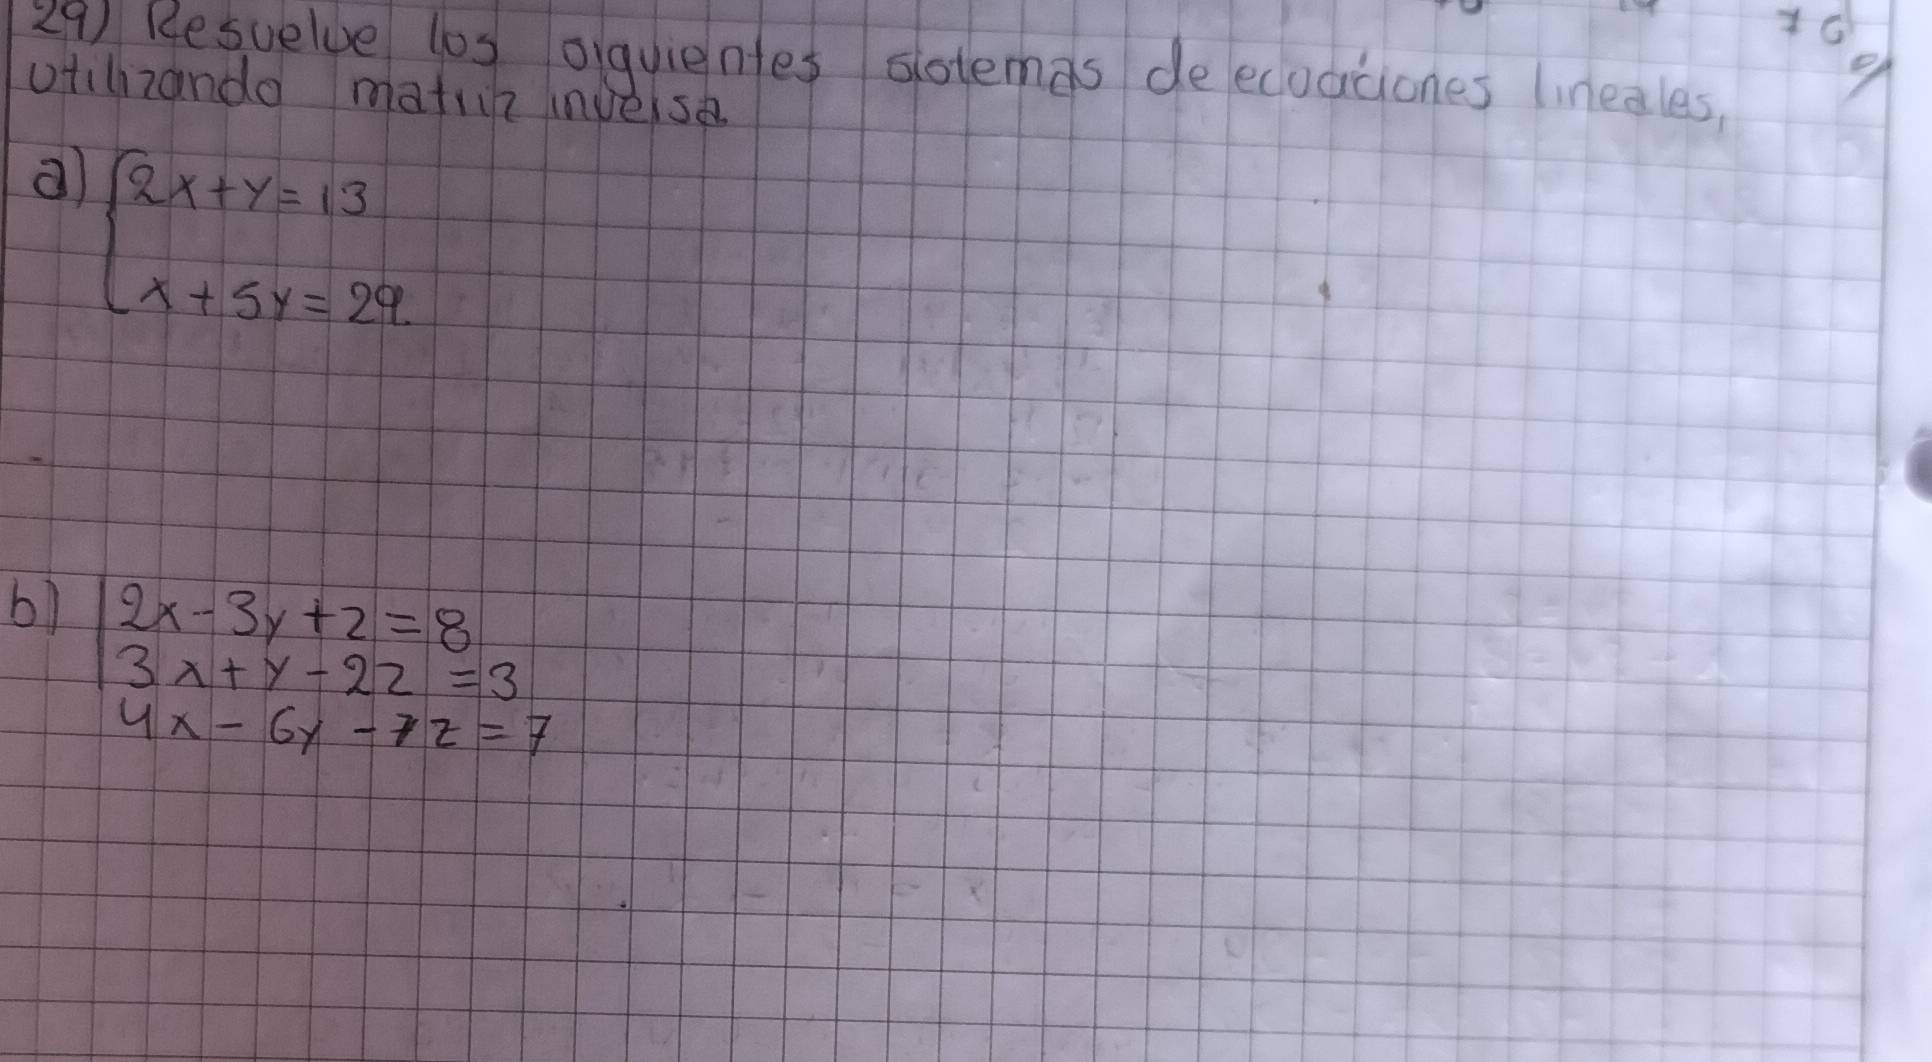 29) Resuelve los siguientes sistemas de ecuaciones lineales,
utilizando matriz inversa
a) 2x+y=13
x+5y=29.
b) 2x-3y+z=8
3x+y-2z=3
4x-6y-7z=7